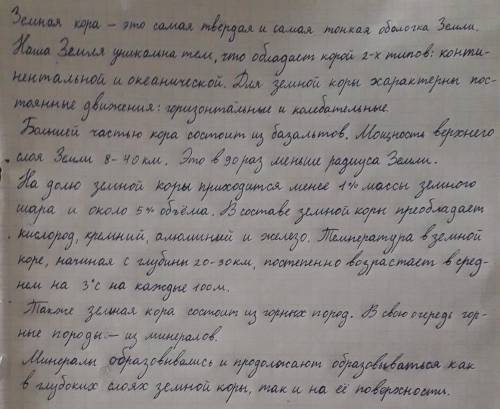 Земная кора – это самая твердая и самая тонкая оболочка Земли.
Наша Земля уникальна тем, что обладает корой 2-х типов: конти-
нентальной и океанической. Для земной коры характерны пос-
тоянные движения: горизонтальные и колебательные.
Большей частью кора состоит из базальтов. Мощность верхнего
слоя Земли 8-40 км. Это в 90 раз меньше радиуса Земли.
На долю земной коры приходится менее 1% массы земного
шара и около 5% объёма. В составе земной коры преобладает
кислород, кремний, алюминий и железо. Температура в земной
коре, начиная с глубины 20-30км, постепенно возрастает в сред-
нем на 3°С на каждые 100м.
Также земная кора состоит из горных пород. В свою очередь гор-
ные породы – из минералов.
Минералы образовивались и продолжают образовываться как
в глубоких слоях земной коры, так и на её поверхности.